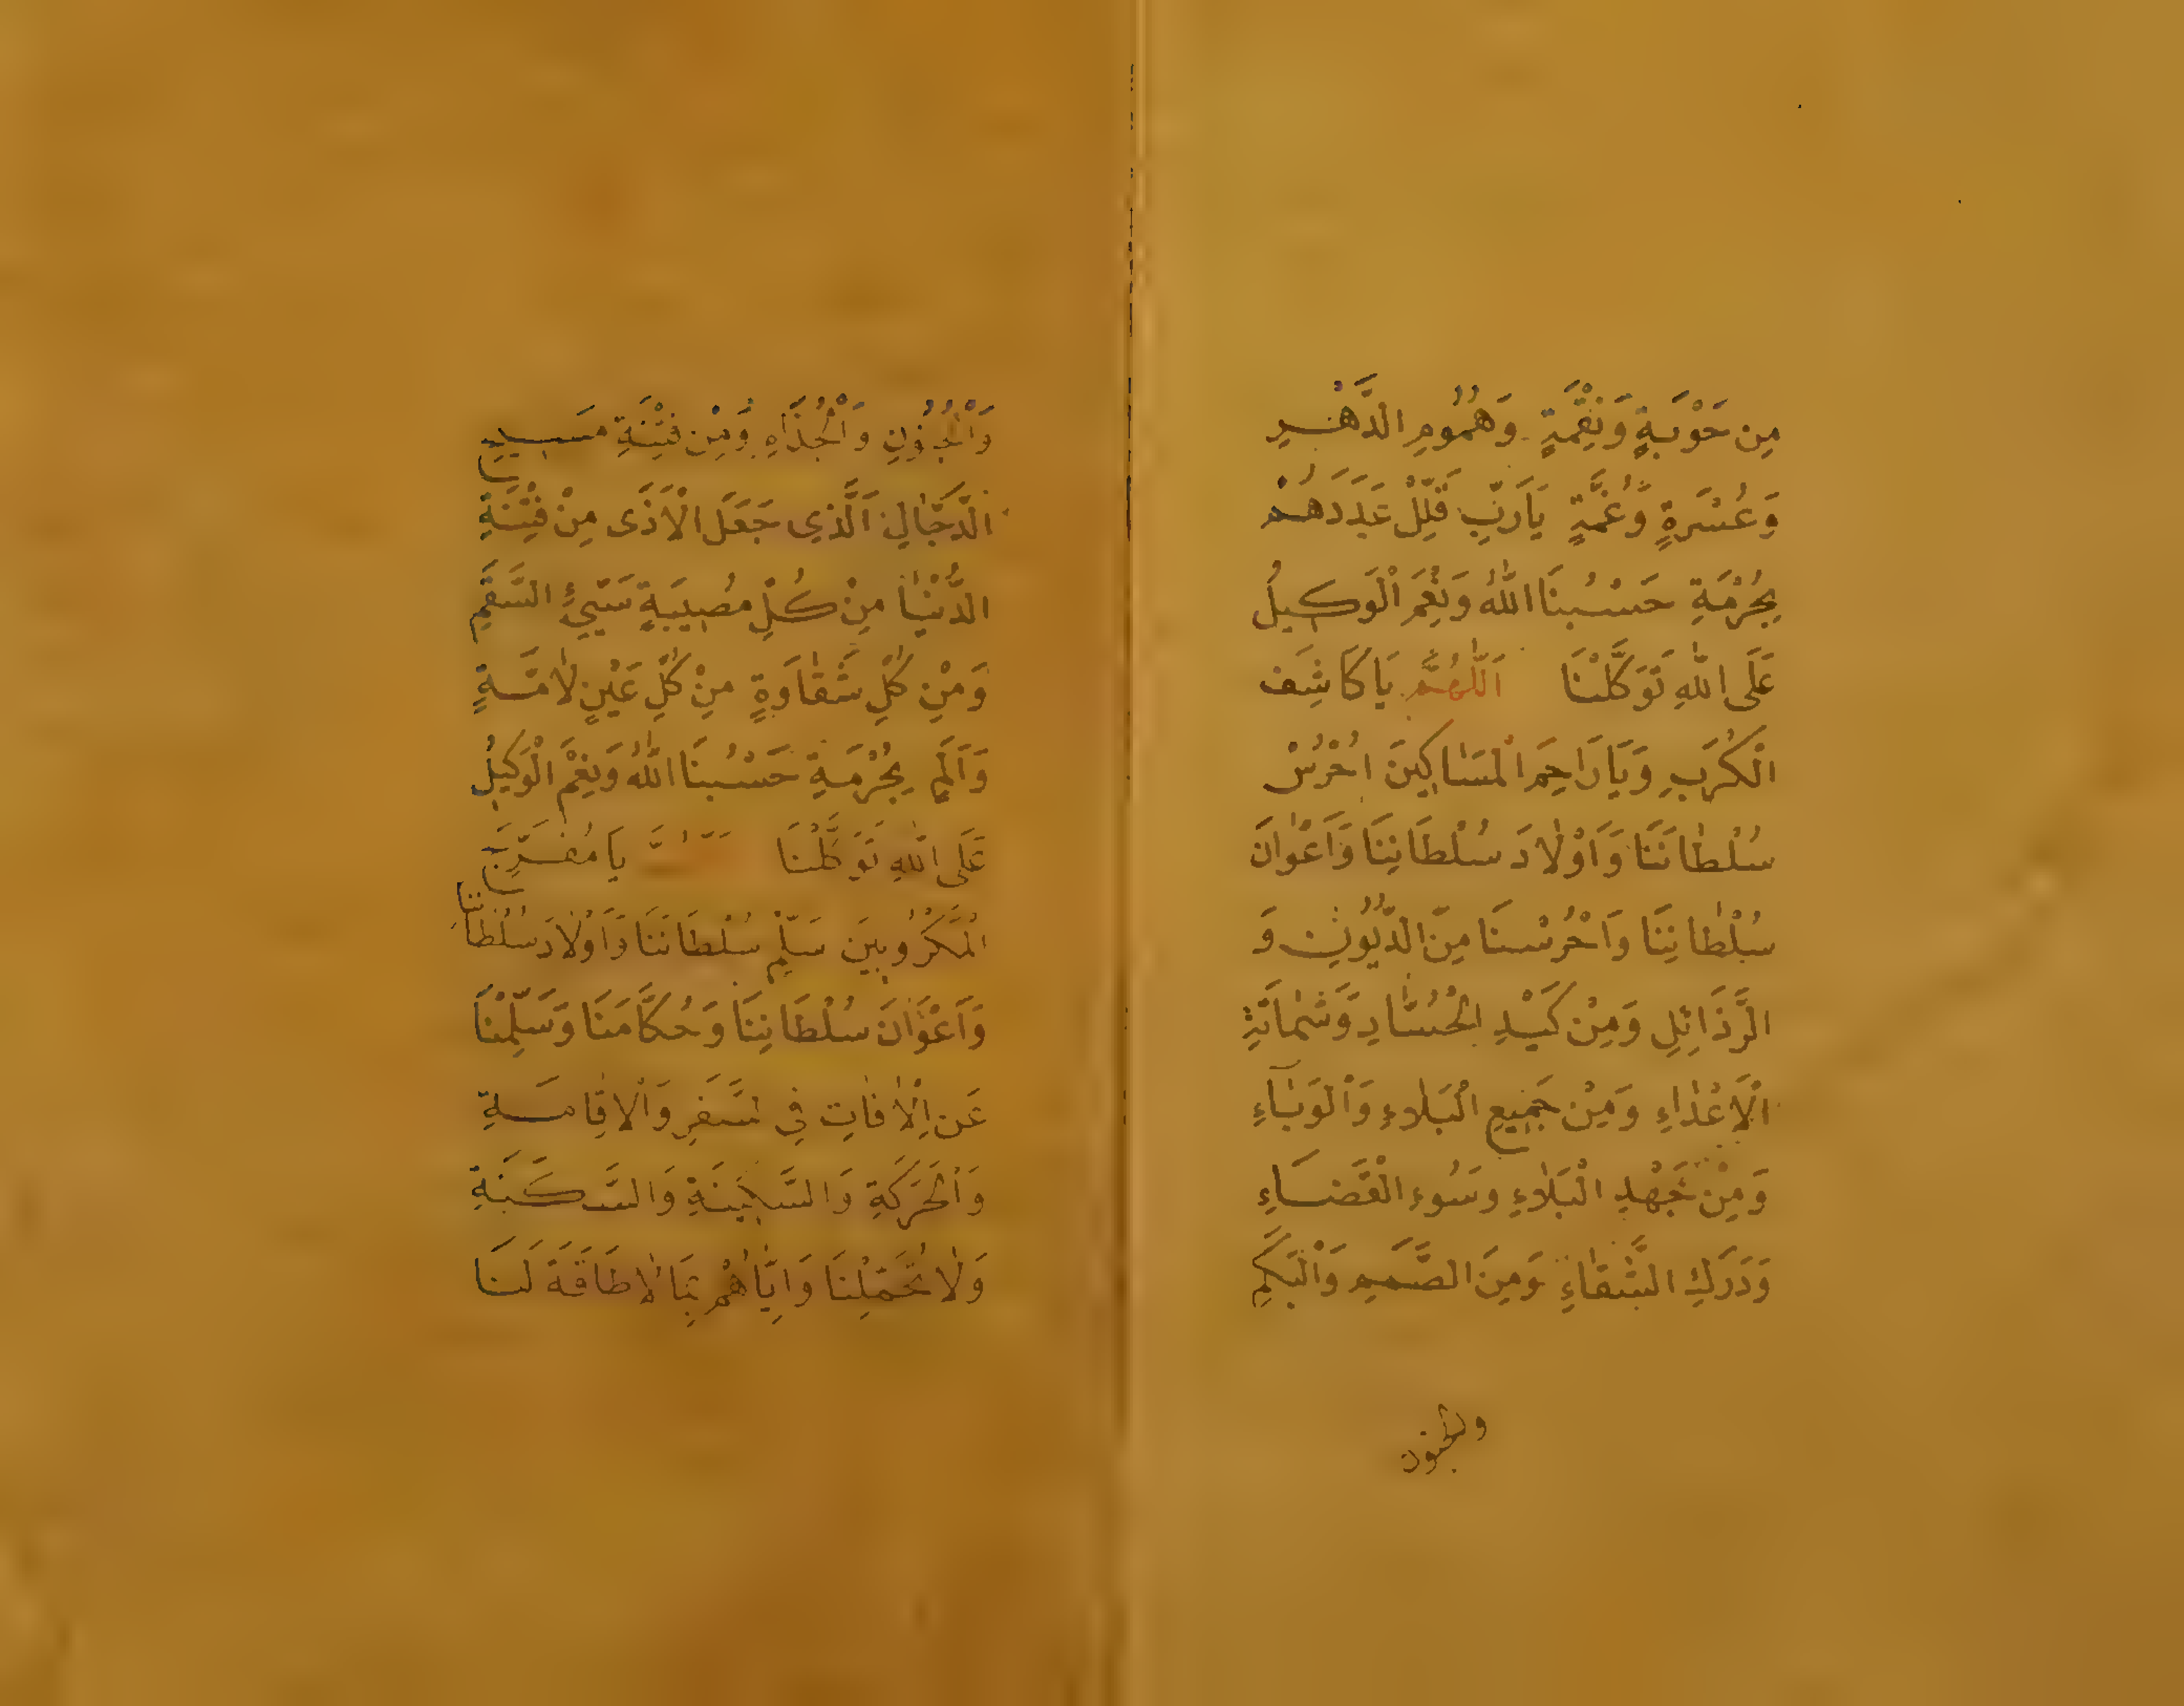 مِن حَوْبَةٍ وَنِقْمَةٍ وَهُمُومِ الدَّهْرِ
وَعُسْرَةٍ وَغُمَّةٍ يَارَبِّ قَلِّلْ عَدَدَهُمْ
بِحُرْمَةِ حَسْبُنَا اللّٰهُ وَنِعْمَ الْوَكِيلُ
عَلَى اللّٰهِ تَوَكَّلْنَا اَللّٰهُمَّ يَا كَاشِفَ
الْكُرَبِ وَيَا رَاحِمَ الْمَسَاكِينَ احْرُسْ
سُلْطَانَنَا وَاَوْلَادَ سُلْطَانِنَا وَاَعْوَانَ
سُلْطَانِنَا وَاحْرُسْنَا مِنَ الدُّيُونِ وَ
الرَّذَائِلِ وَمِنْ كَيْدِ الْحُسَّادِ وَشَمَاتَةِ
الْاَعْدَاءِ وَمِنْ جَمِيعِ الْبَلَاءِ وَالْوَبَاءِ
وَمِنْ جَهْدِ الْبَلَاءِ وَسُوءِ الْقَضَاءِ
وَدَرَكِ الشَّقَاءِ وَمِنَ الصَّمَمِ وَالْبَكَمِ
وَالْجُنُونِ وَالْجُذَامِ وَمِنْ فِتْنَةِ مَسِيحِ
الدَّجَّالِ الَّذِى جَعَلَ الْاَذَى مِنْ فِتْنَةِ
الدُّنْيَا مِنْ كُلِّ مُصِيبَةٍ سَيِّئِ السَّقَمِ
وَمِنْ كُلِّ شَقَاوَةٍ مِنْ كُلِّ عَيْنٍ لَامَّةٍ
وَاَلَمٍ بِحُرْمَةِ حَسْبُنَا اللّٰهُ وَنِعْمَ الْوَكِيلِ
عَلَى اللّٰهِ تَوَكَّلْنَا يَا مُفَرِّجَ
الْمَكْرُوبِينَ سَلِّمْ سُلْطَانَنَا وَاَوْلَادَ سُلْطَانِنَا
وَاَعْوَانَ سُلْطَانِنَا وَحُكَّامَنَا وَسَلِّمْنَا
عَنِ الْاٰفَاتِ فِى سَفَرِ وَالْاِقَامَةِ
وَالْحَرَكَةِ وَالسَّكِينَةِ وَالسَّكَنَةِ
وَلَا تُحَمِّلْنَا وَاِيَّاهُمْ بِمَا لَا طَاقَةَ لَنَا